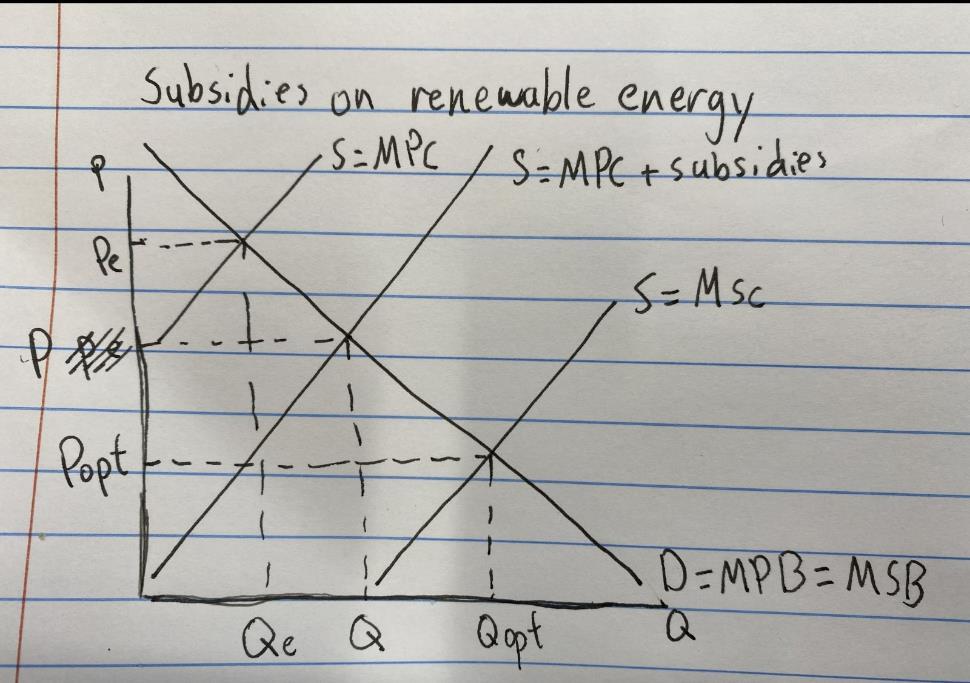 Subsidies on renewable energy
P
S=MPC
S=MPC + subsidies
Pe
S=MSC
P
Popt
D=MPB=MSB
Qe
Q
Qopt
Q